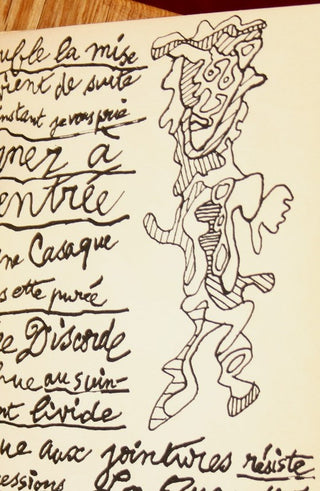 uble la mise
ient de suite
instant je vous prie
nez a
entrée
ne Casaque
s ette purée
e Discorde
hue au suin-
nt livide
ue aux jointures résiste
essions